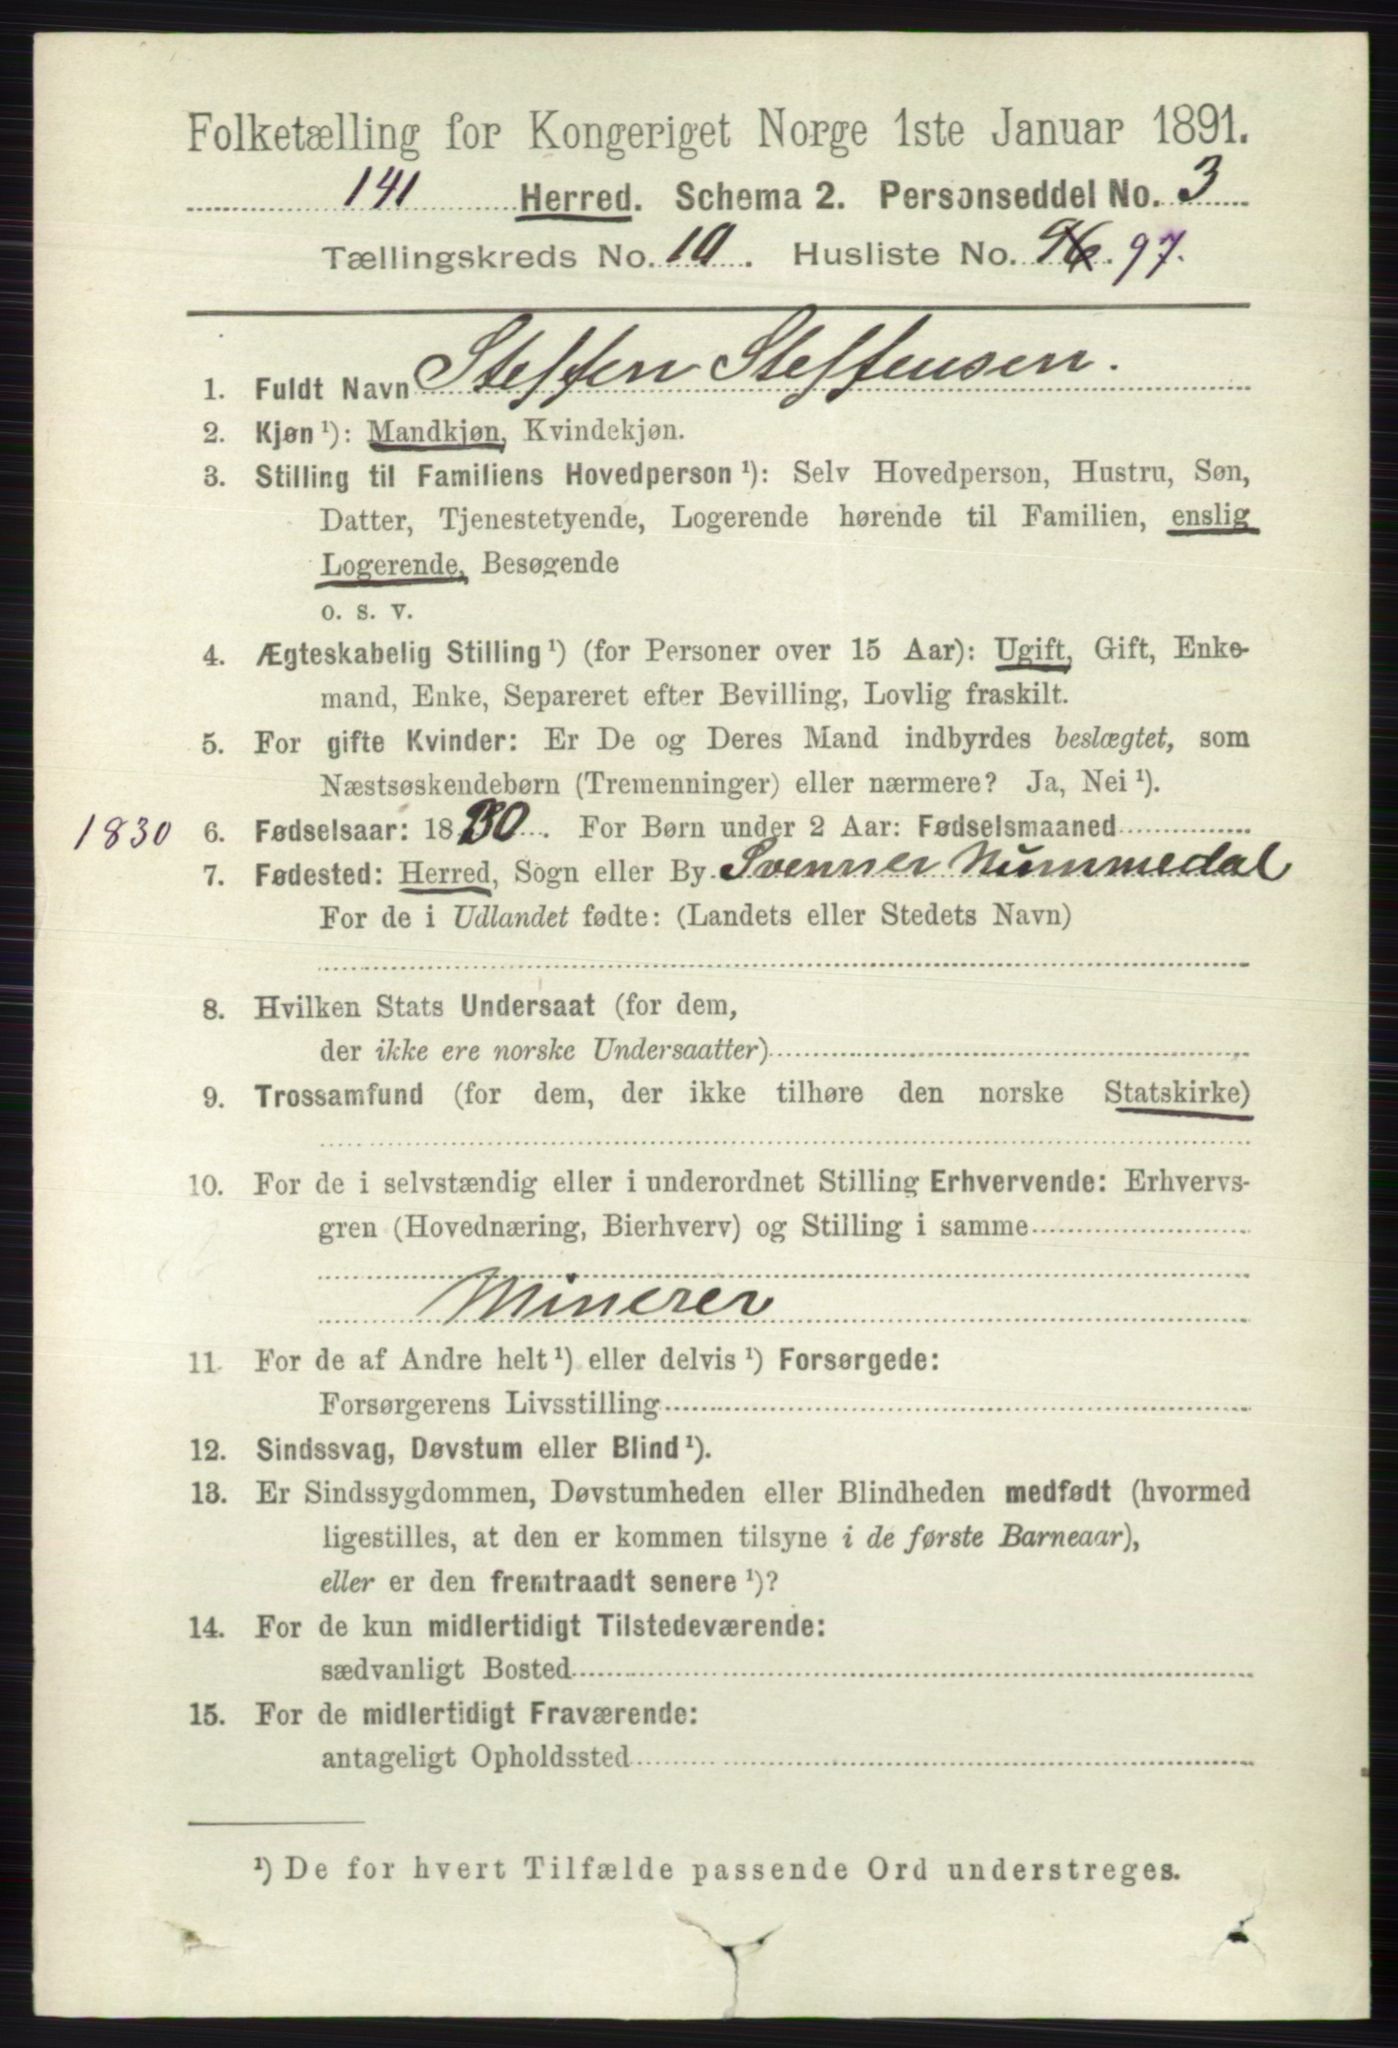 Folketælling for Kongeriget Norge 1ste Januar 1891.
141 Herred. Schema 2. Personseddel No. 3
Tællingskreds No. 10. Husliste No. 96. 97.
1. Fuldt Navn Steffen Steffensen.
2. Kjøn ¹): Mandkjøn, Kvindekjøn.
3. Stilling til Familiens Hovedperson ¹): Selv Hovedperson, Hustru, Søn,
Datter, Tjenestetyende, Logerende hørende til Familien, enslig
Logerende, Besøgende
o. s. v.
4. Ægteskabelig Stilling ¹) (for Personer over 15 Aar): Ugift, Gift, Enke-
mand, Enke, Separeret efter Bevilling, Lovlig fraskilt.
5. For gifte Kvinder: Er De og Deres Mand indbyrdes beslægtet, som
Næstsøskendebørn (Tremenninger) eller nærmere? Ja, Nei ¹).
1830 6. Fødselsaar: 1830. For Børn under 2 Aar: Fødselsmaaned
7. Fødested: Herred, Sogn eller By Svenner Nummedal
For de i Udlandet fødte: (Landets eller Stedets Navn)
8. Hvilken Stats Undersaat (for dem,
der ikke ere norske Undersaatter)
9. Trossamfund (for dem, der ikke tilhøre den norske Statskirke)
10. For de i selvstændig eller i underordnet Stilling Erhvervende: Erhvervs-
gren (Hovednæring, Bierhverv) og Stilling i samme
Minerer
11. For de af Andre helt ¹) eller delvis ¹) Forsørgede:
Forsørgerens Livsstilling
12. Sindssvag, Døvstum eller Blind ¹).
13. Er Sindssygdommen, Døvstumheden eller Blindheden medfødt (hvormed
ligestilles, at den er kommen tilsyne i de første Barneaar),
eller er den fremtraadt senere ¹)?
14. For de kun midlertidigt Tilstedeværende:
sædvanligt Bosted
15. For de midlertidigt Fraværende:
antageligt Opholdssted
¹) De for hvert Tilfælde passende Ord understreges.